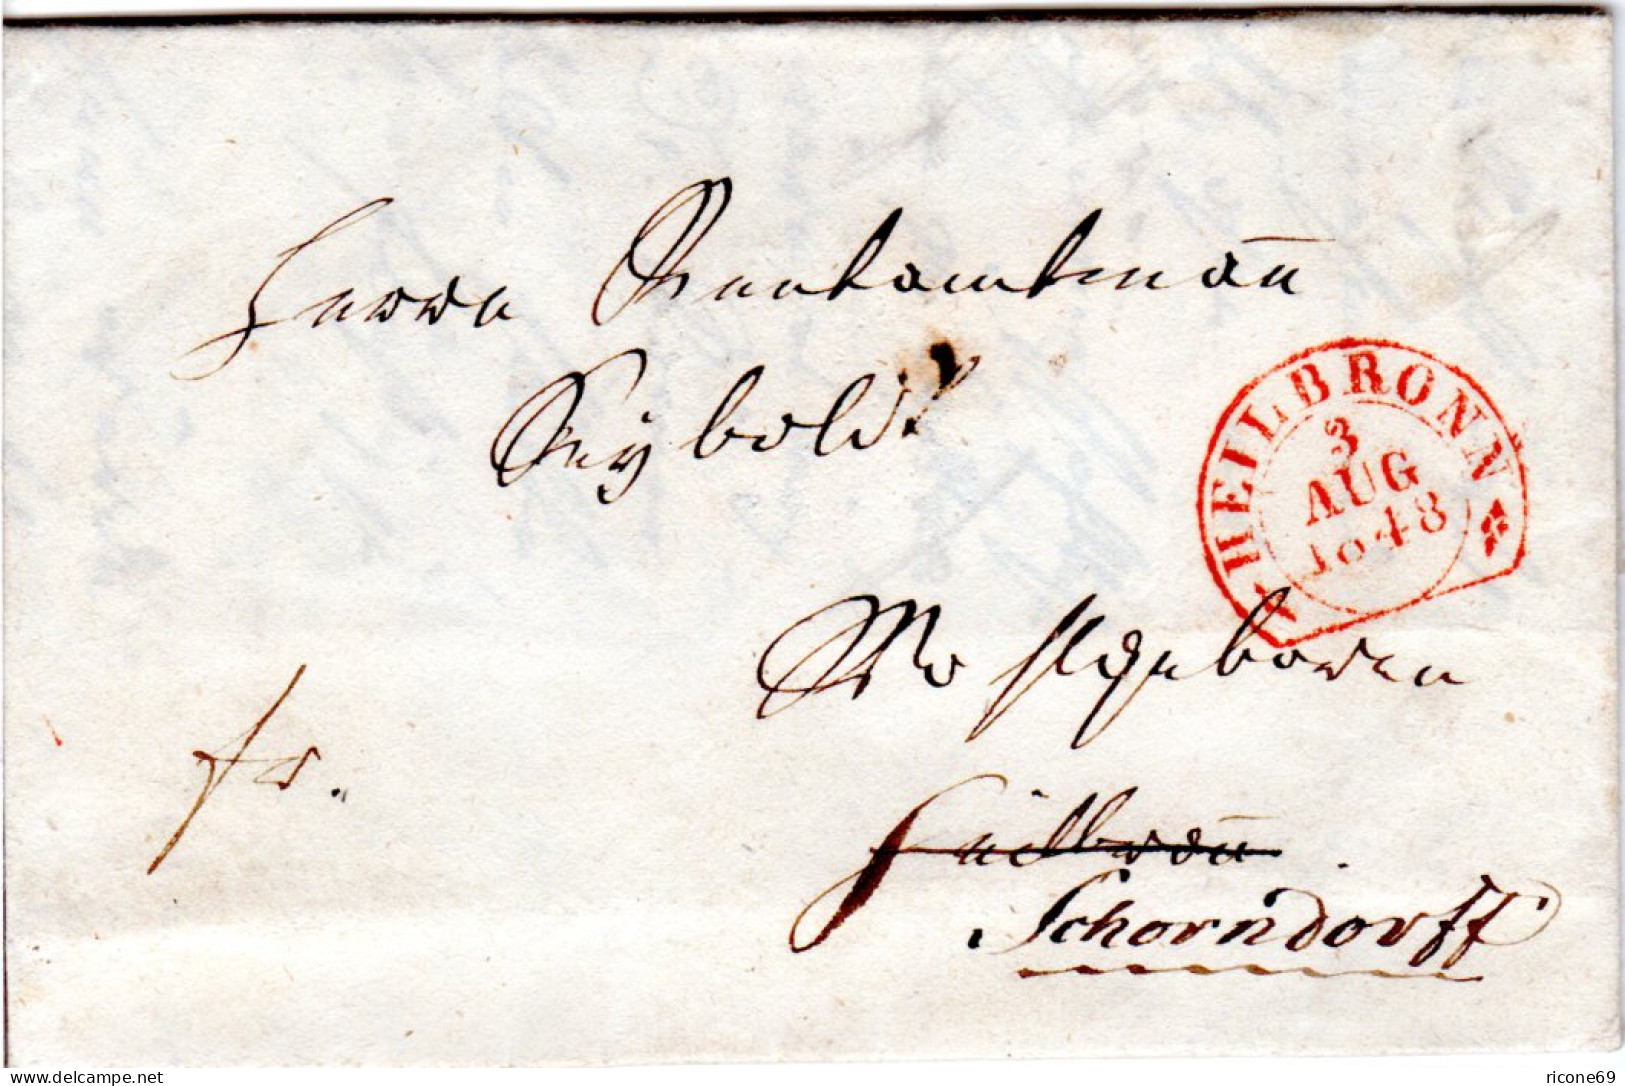 Herrn Rentamtmañ
Seybold
HEILBRONN
3
AUG
1848
Wohlgeboren
fr.
Heilbroñ.
Schorndorff
www.delcampe.net
ricone69